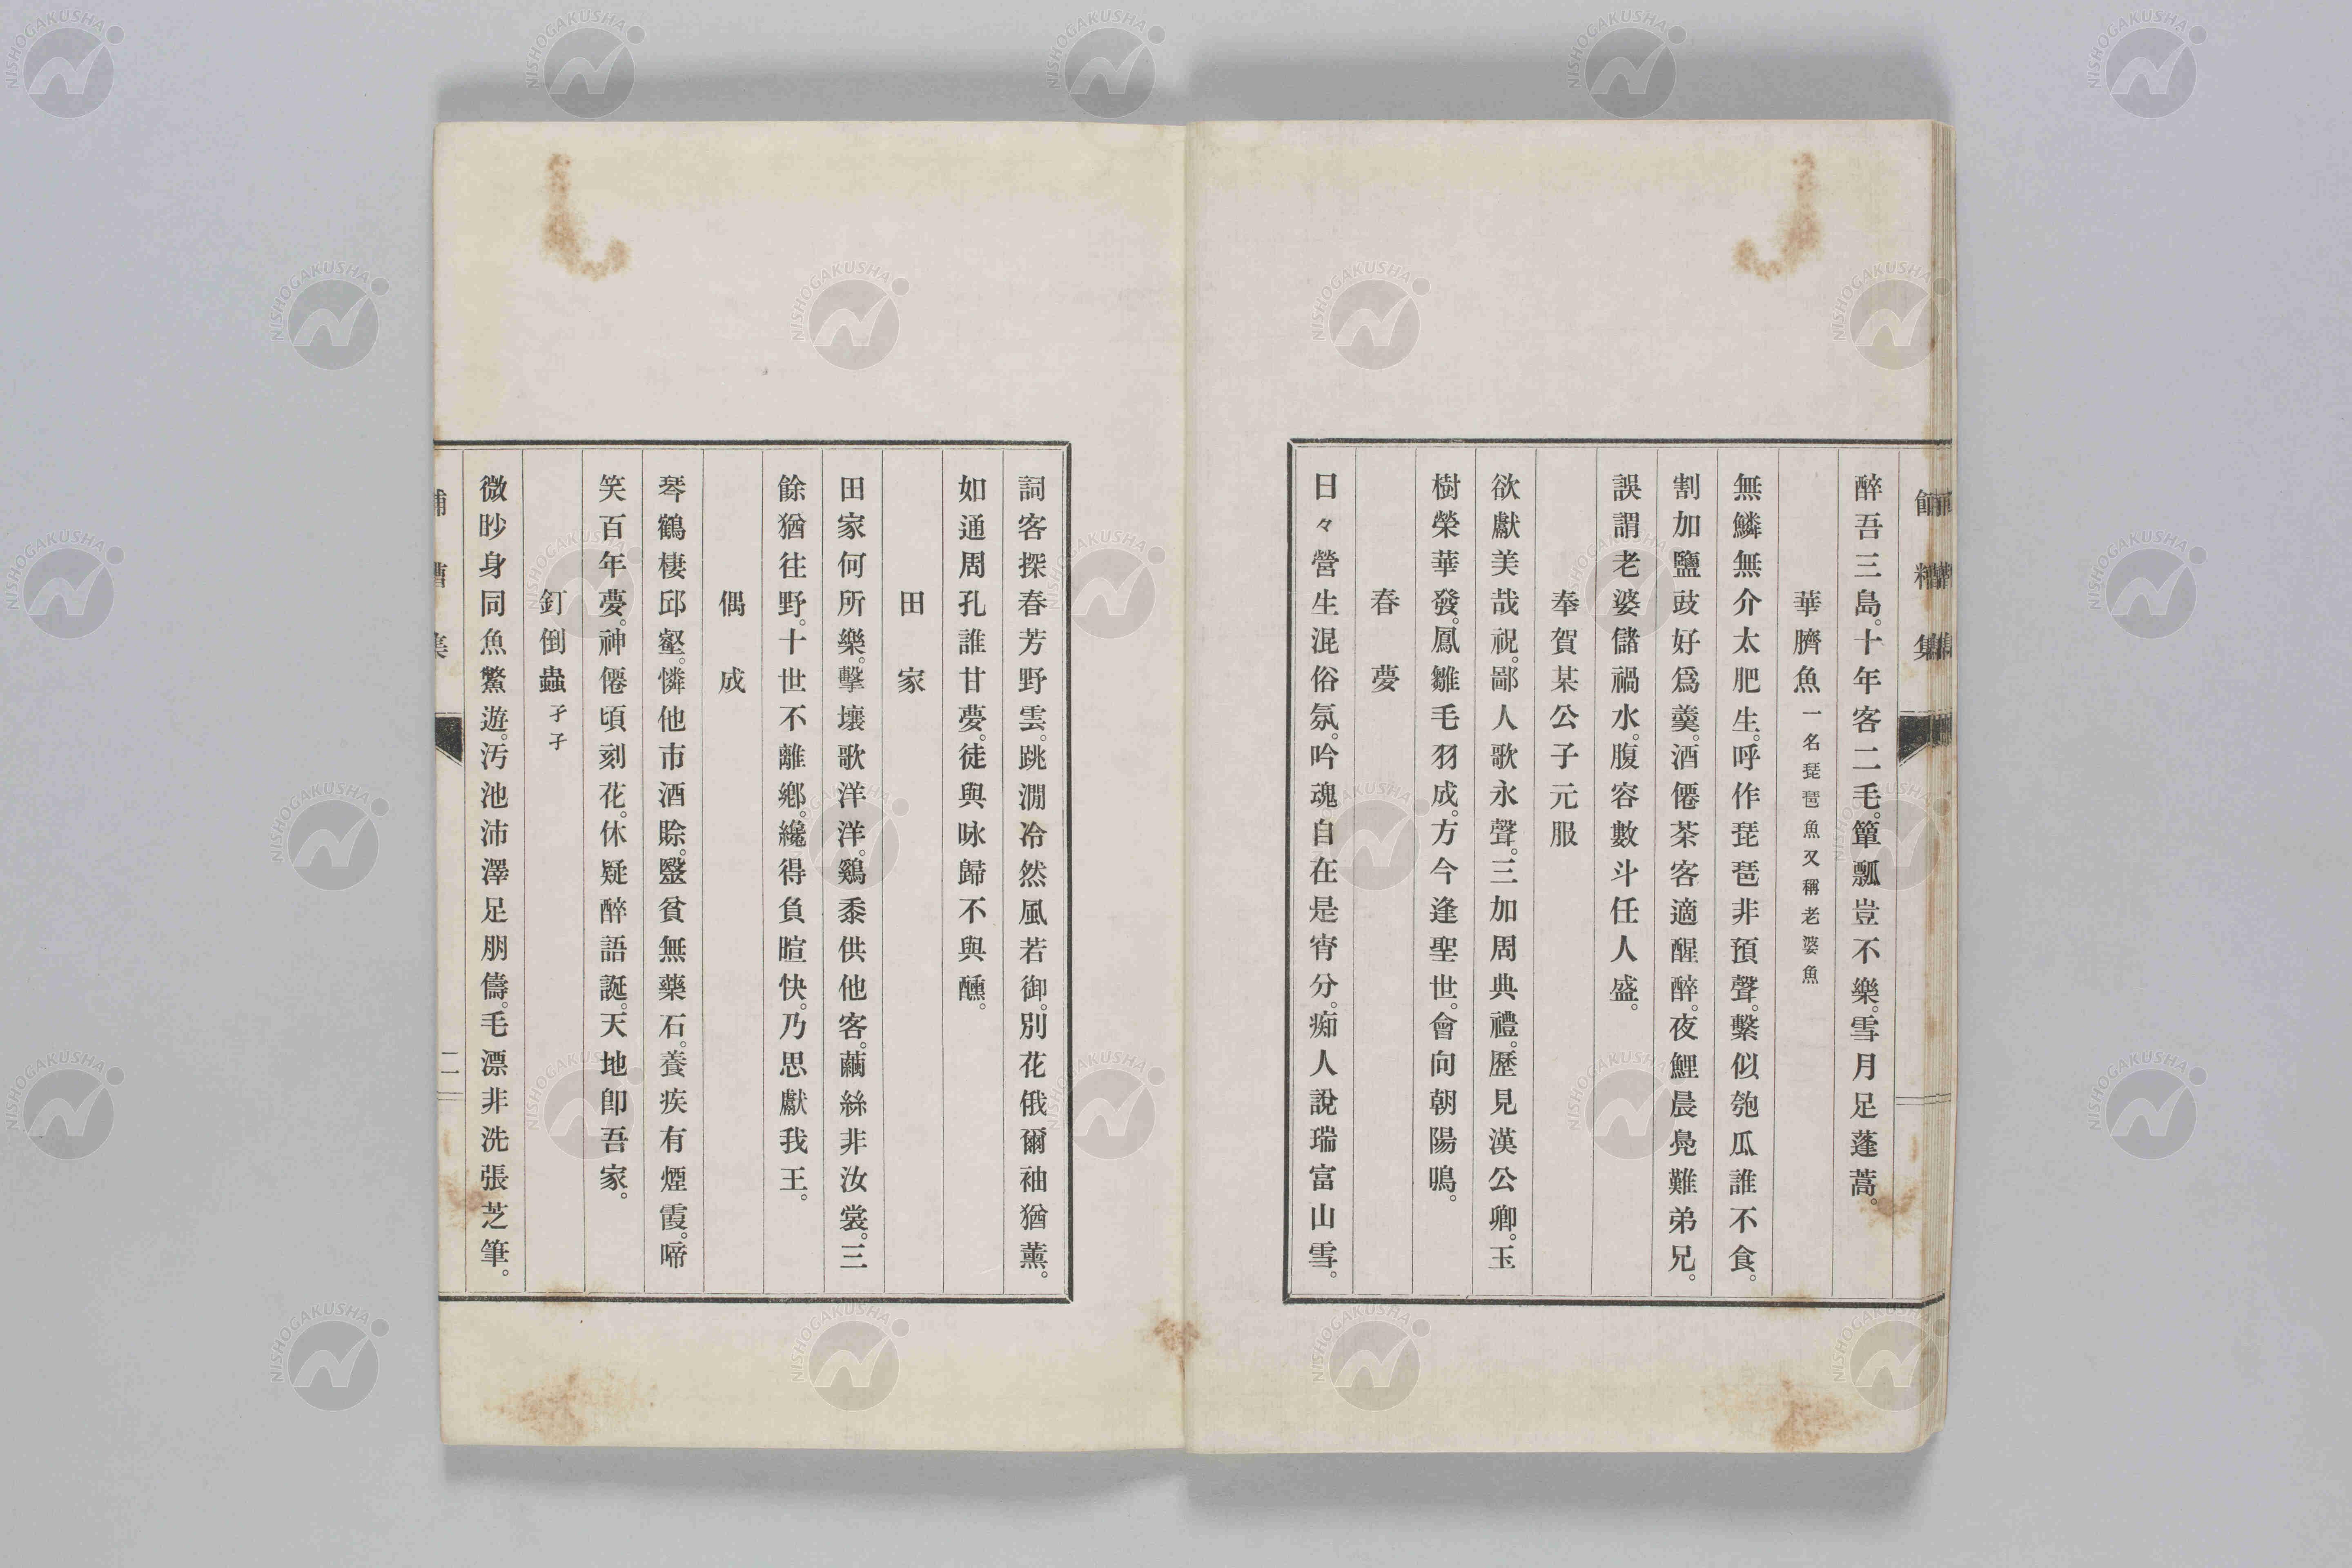 餔糟集
醉吾三島。十年客二毛。簞瓢豈不樂。雪月足蓬蒿。
華臍魚 一名琵琶魚又稱老婆魚
無鱗無介太肥生。呼作琵琶非預聲。繫似匏瓜誰不食。
割加鹽豉好爲羹。酒僊茶客適醒醉。夜鯉晨鳧難弟兄。
誤謂老婆儲禍水。腹容數斗任人盛。
奉賀某公子元服
欲獻美哉祝。鄙人歌永聲。三加周典禮。歷見漢公卿。玉
樹榮華發。鳳雛毛羽成。方今逢聖世。會向朝陽鳴。
春夢
日々營生混俗氛。吟魂自在是宵分。痴人說瑞富山雪。
詞客探春芳野雲。跳澗冷然風若御。別花俄爾袖猶薰。
如通周孔誰甘夢。徒與咏歸不與醺。
田家
田家何所樂。擊壤歌洋洋。鷄黍供他客。繭絲非汝裳。三
餘猶往野。十世不離鄕。纔得負暄快。乃思獻我王。
偶成
琴鶴棲邱壑。憐他市酒賒。毉貧無藥石。養疾有煙霞。啼
笑百年夢。神僊頃刻花。休疑醉語誕。天地卽吾家。
釘倒蟲 孑孑
微眇身同魚鱉遊。汚池沛澤足朋儔。毛漂非洗張芝筆。
二